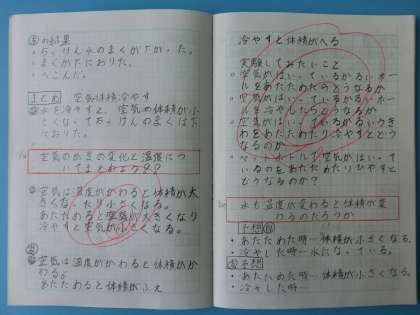 の結果
・せっけん水のまくが下がった。
・まくが下におりた。
・へこんだ。
まとめ 空気体積冷やす
水を冷やすと、空気の体積が小
さくなって、せっけんのまくは下
におりた。
空気の体積の変化と温度につ
いてまとめよう
空気は温度がかわると体積が大
きくなったり小さくなる。
あたためると空気が大きくなり
冷やすと空気が小さくなる。
空気は温度がかわると体積がか
わる。
あたためると体積がふえ
冷やすと体積がへる
実験してみたいこと
・空気がはいっているかるいボー
ルをあたためたらどうなるか
・空気がはいっているかるいボー
ルを冷やしたらどうなるか
・空気がはいっているかるいうき
わをあたためたり冷やすとどう
なるのか
・ペットボトルで空気がはいって
いるのをあたためたりひやすと
どうなるのか?
水も温度が変わると体積が変
わるのだろうか
予想
・あたためた時…体積が小さくなる。
・冷やした時…水になっている。
予想
・あたためた時…体積が小さくなる。
・冷やした時…